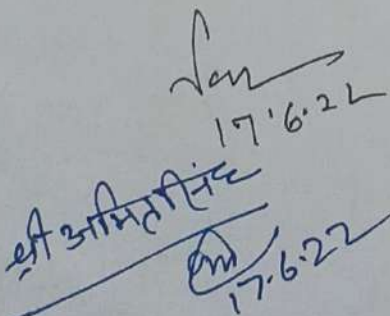 17.6.22
श्री अमित सिंह
17.6.22